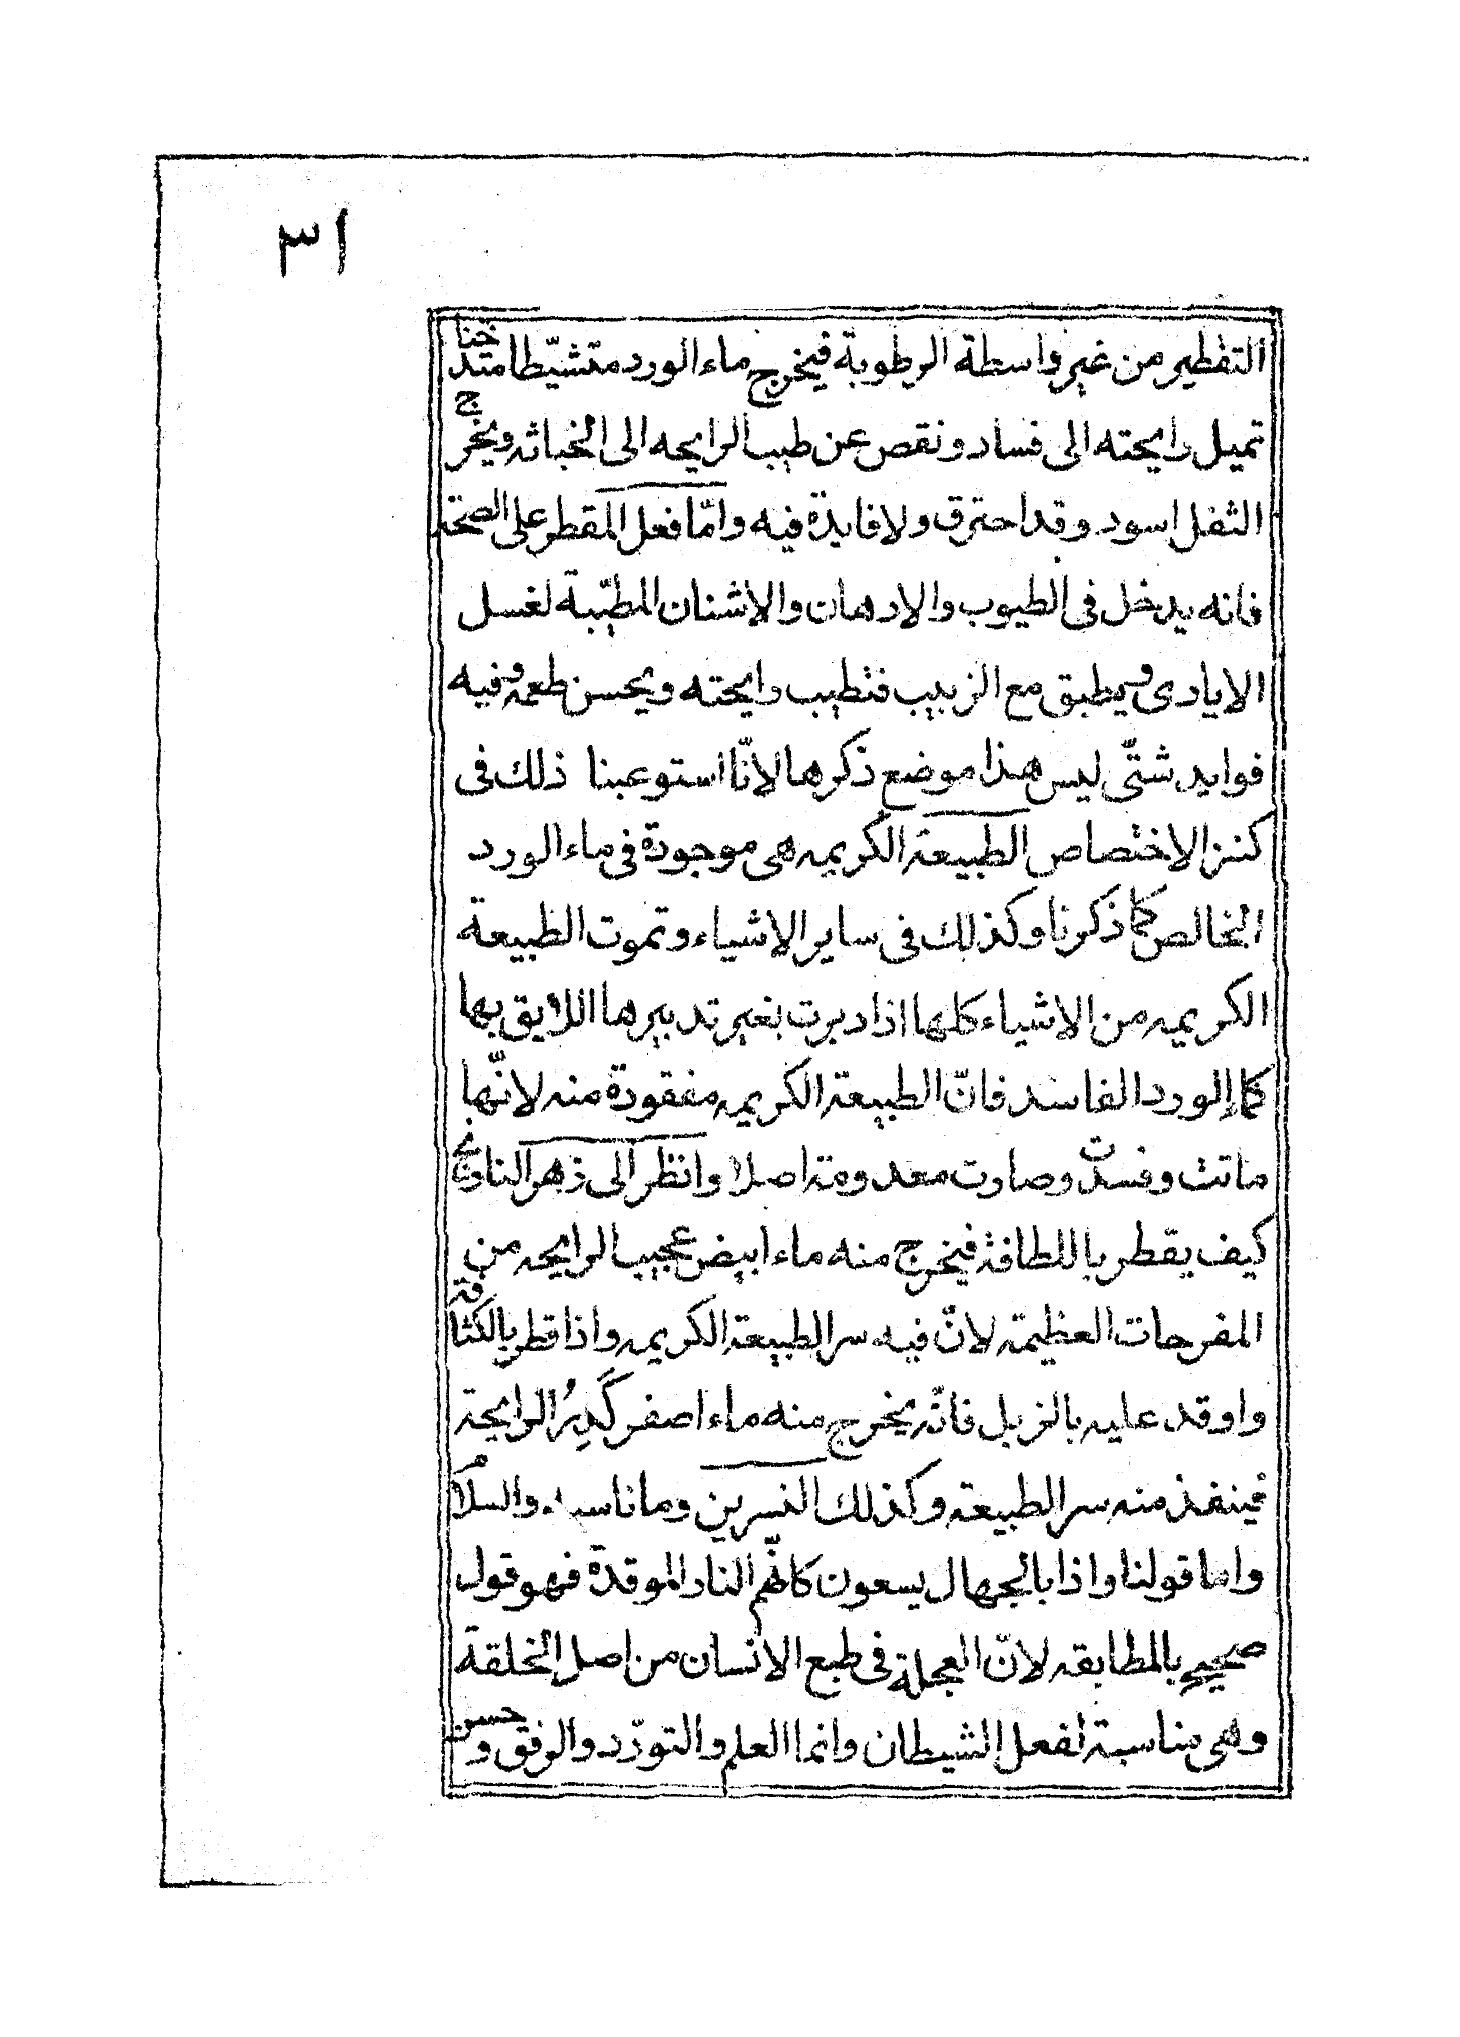 ٣١
التقطير من غير واسطة الرطوبة فيخرج ماء الورد متشيّطا متدخنا
تميل رايحته الى فساد ونقص عن طيب الرايحه الى الخباثه ويخرج
الثفل اسود وقد احترق ولا فايدة فيه وامّا فعل المقطر على الصحة
فانه يدخل فى الطيوب والادهان والاشنان المطيّبة لغسل
الايادى ويطبق مع الزبيب فتطيب رايحته ويحسن طعمه وفيه
فوايد شتّى ليس هذا موضع ذكرها لانّا استوعبنا ذلك فى
كنز الاختصاص الطبيعة الكريمه هى موجودة فى ماء الورد
الخالص كما ذكرنا وكذلك فى ساير الاشياء وتموت الطبيعة
الكريمه من الاشياء كلها اذا دبرت بغير تدبيرها اللايق بها
كما الورد الفاسد فانّ الطبيعة الكريمه مفقودة منه لانّها
ماتت وفسدت وصارت معدومة اصلا وانظر الى زهر النارنج
كيف يقطر باللطافة فيخرج منه ماء ابيض عجيب الرايحه من
المفرحات العظيمة لانّ فيه سر الطبيعة الكريمه واذا قطر بالكثافة
واوقد عليه بالزبل فانّه يخرج منه ماء اصفر كَدِرُ الرايحة
فينفذ منه سر الطبيعة وكذلك النسرين وما ناسبه والسلام
واما قولنا واذا بالجهال يسعون كانّهم النار الموقدة فهو قول
صحيح بالمطابقه لانّ العجلة فى طبع الانسان من اصل الخلقة
وهى مناسبة لفعل الشيطان وانما العلم والتورّد والرفق وحسن